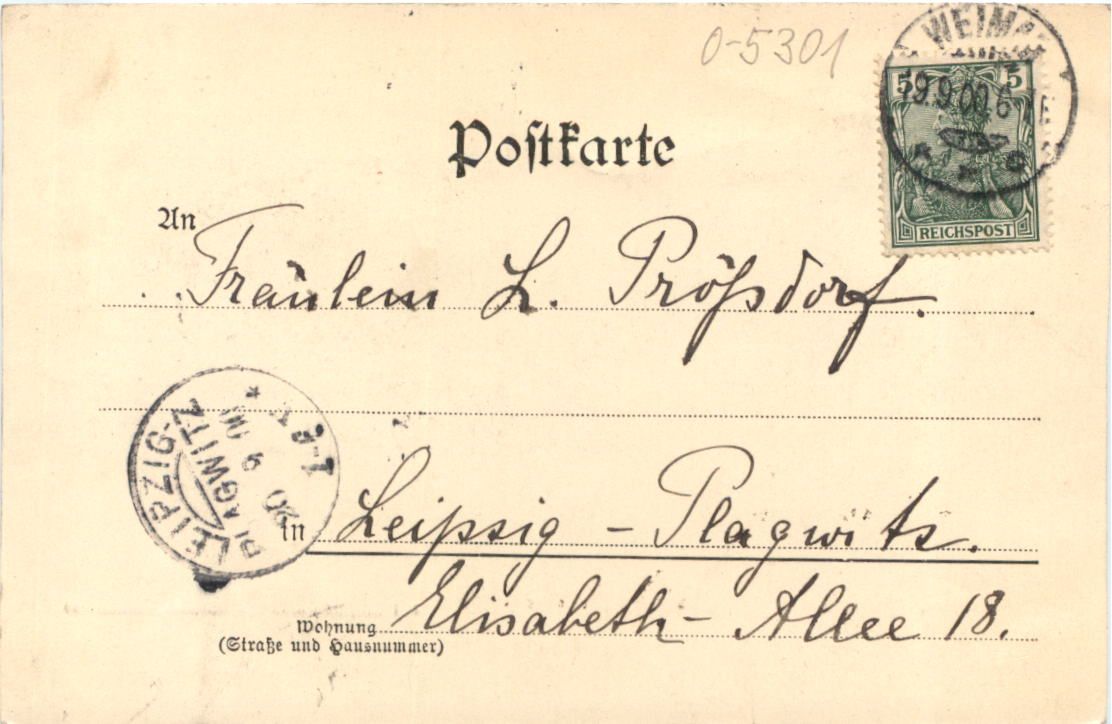 0-5301
WEIMA
19.9.00.6
5 5
REICHSPOST
Postkarte
An
Fräulein L. Prößdorf.
LEIPZIG-
PLAGWITZ
20 9 00
in Leipzig - Plagwitz.
Elisabeth - Allee 18.
Wohnung
(Straße und Hausnummer)